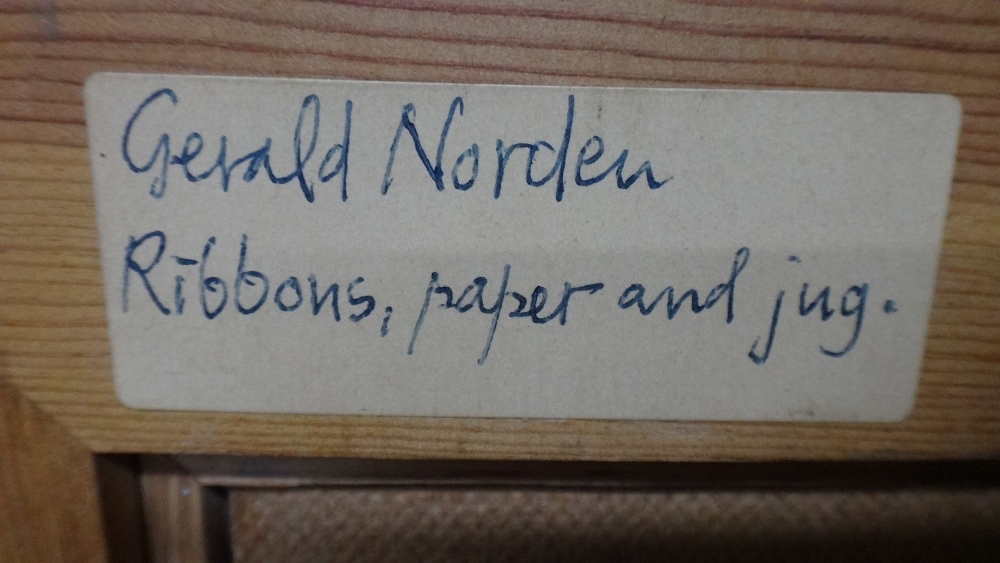 Gerald Norden
Ribbons, paper and jug.